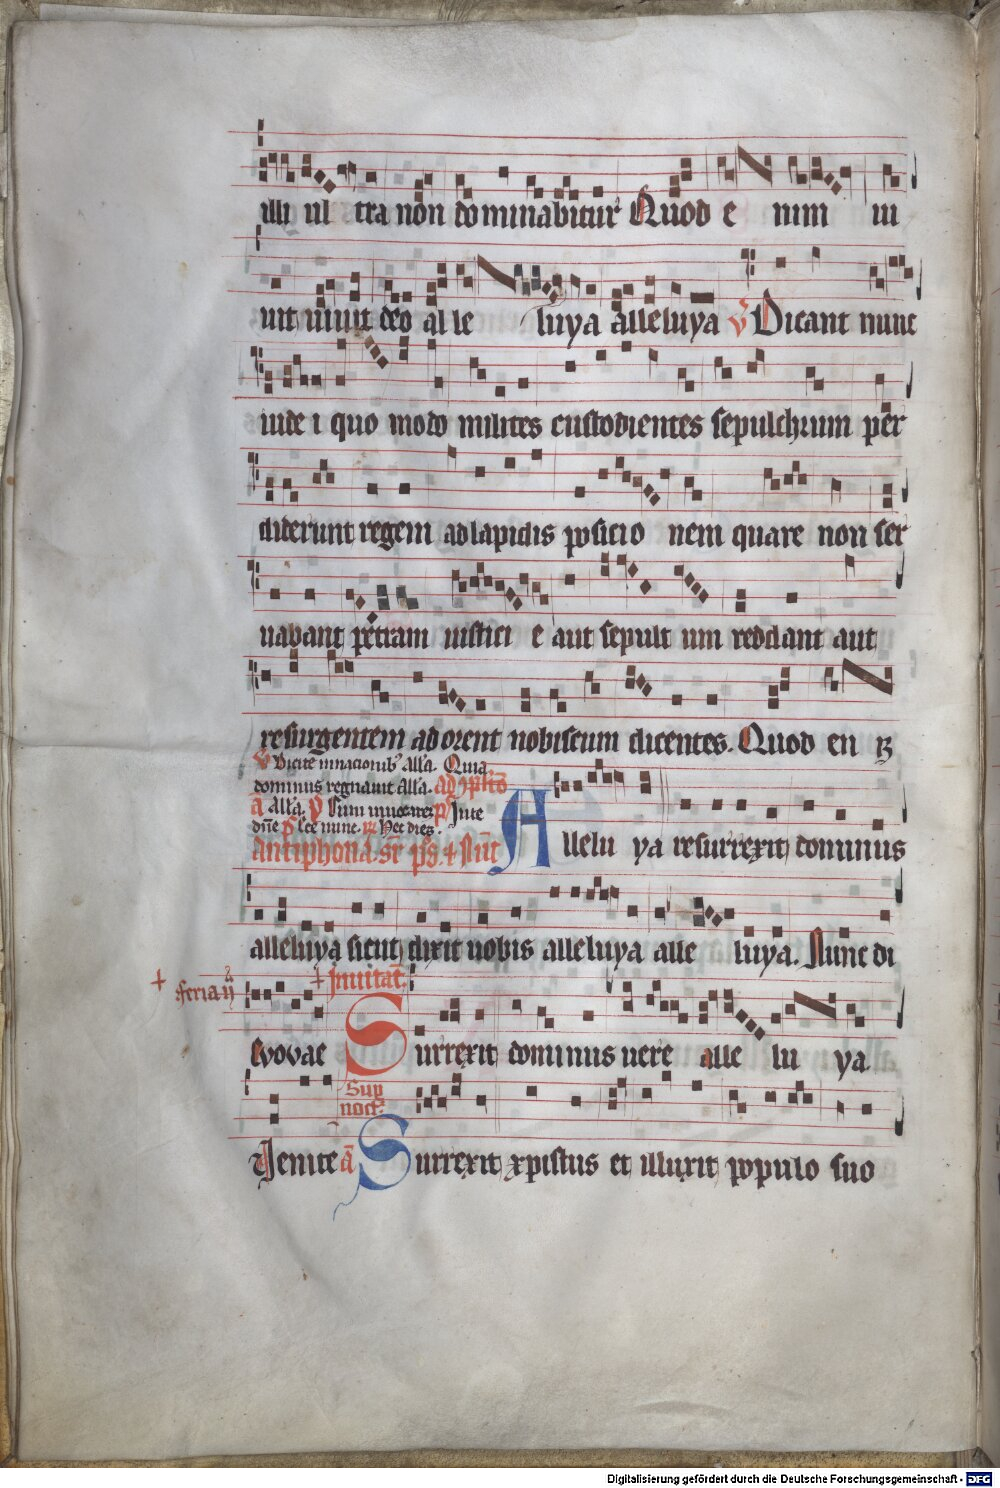 illi ul tra non do minabitur Quod e nim ui
uit uiuit deo al le luya alleluya ℣ Dicant nunc
iude i quo modo milites custodientes sepulchrum per
diderunt regem ad lapidis posicio nem quare non ser
uabant petram iusticie aut sepult um reddant aut
resurgentem ad orent nobiscum dicentes. Quod en ℟
℣ Dicite in nacionib' all'a. Quia
dominus regnauit all'a.
a All'a. Inte
dn̄e hec dies.
A llelu ya resurrexit dominus
alleluya sicut dixit uobis alleluya alle luya. Nunc di
+ feria ij + Inuitat.
Evovae Surrexit dominus uere alle lu ya
Sup
noct
Venite a Surrexit xpistus et illuxit populo suo
Digitalisierung gefördert durch die Deutsche Forschungsgemeinschaft - DFG